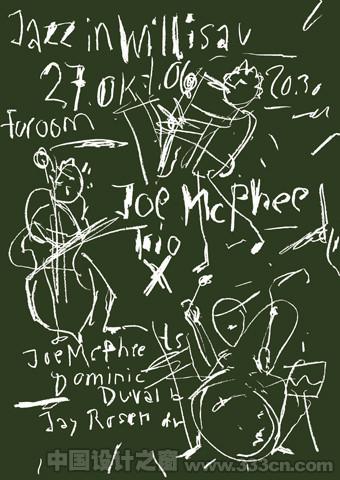 Jazz in Willisau
27.OKT.06 20.30
Foroom
Joe McPhee
Trio X
Joe McPhee ts
Dominic
Duval b
Jay Rosen dr
中国设计之窗 www.333cn.com